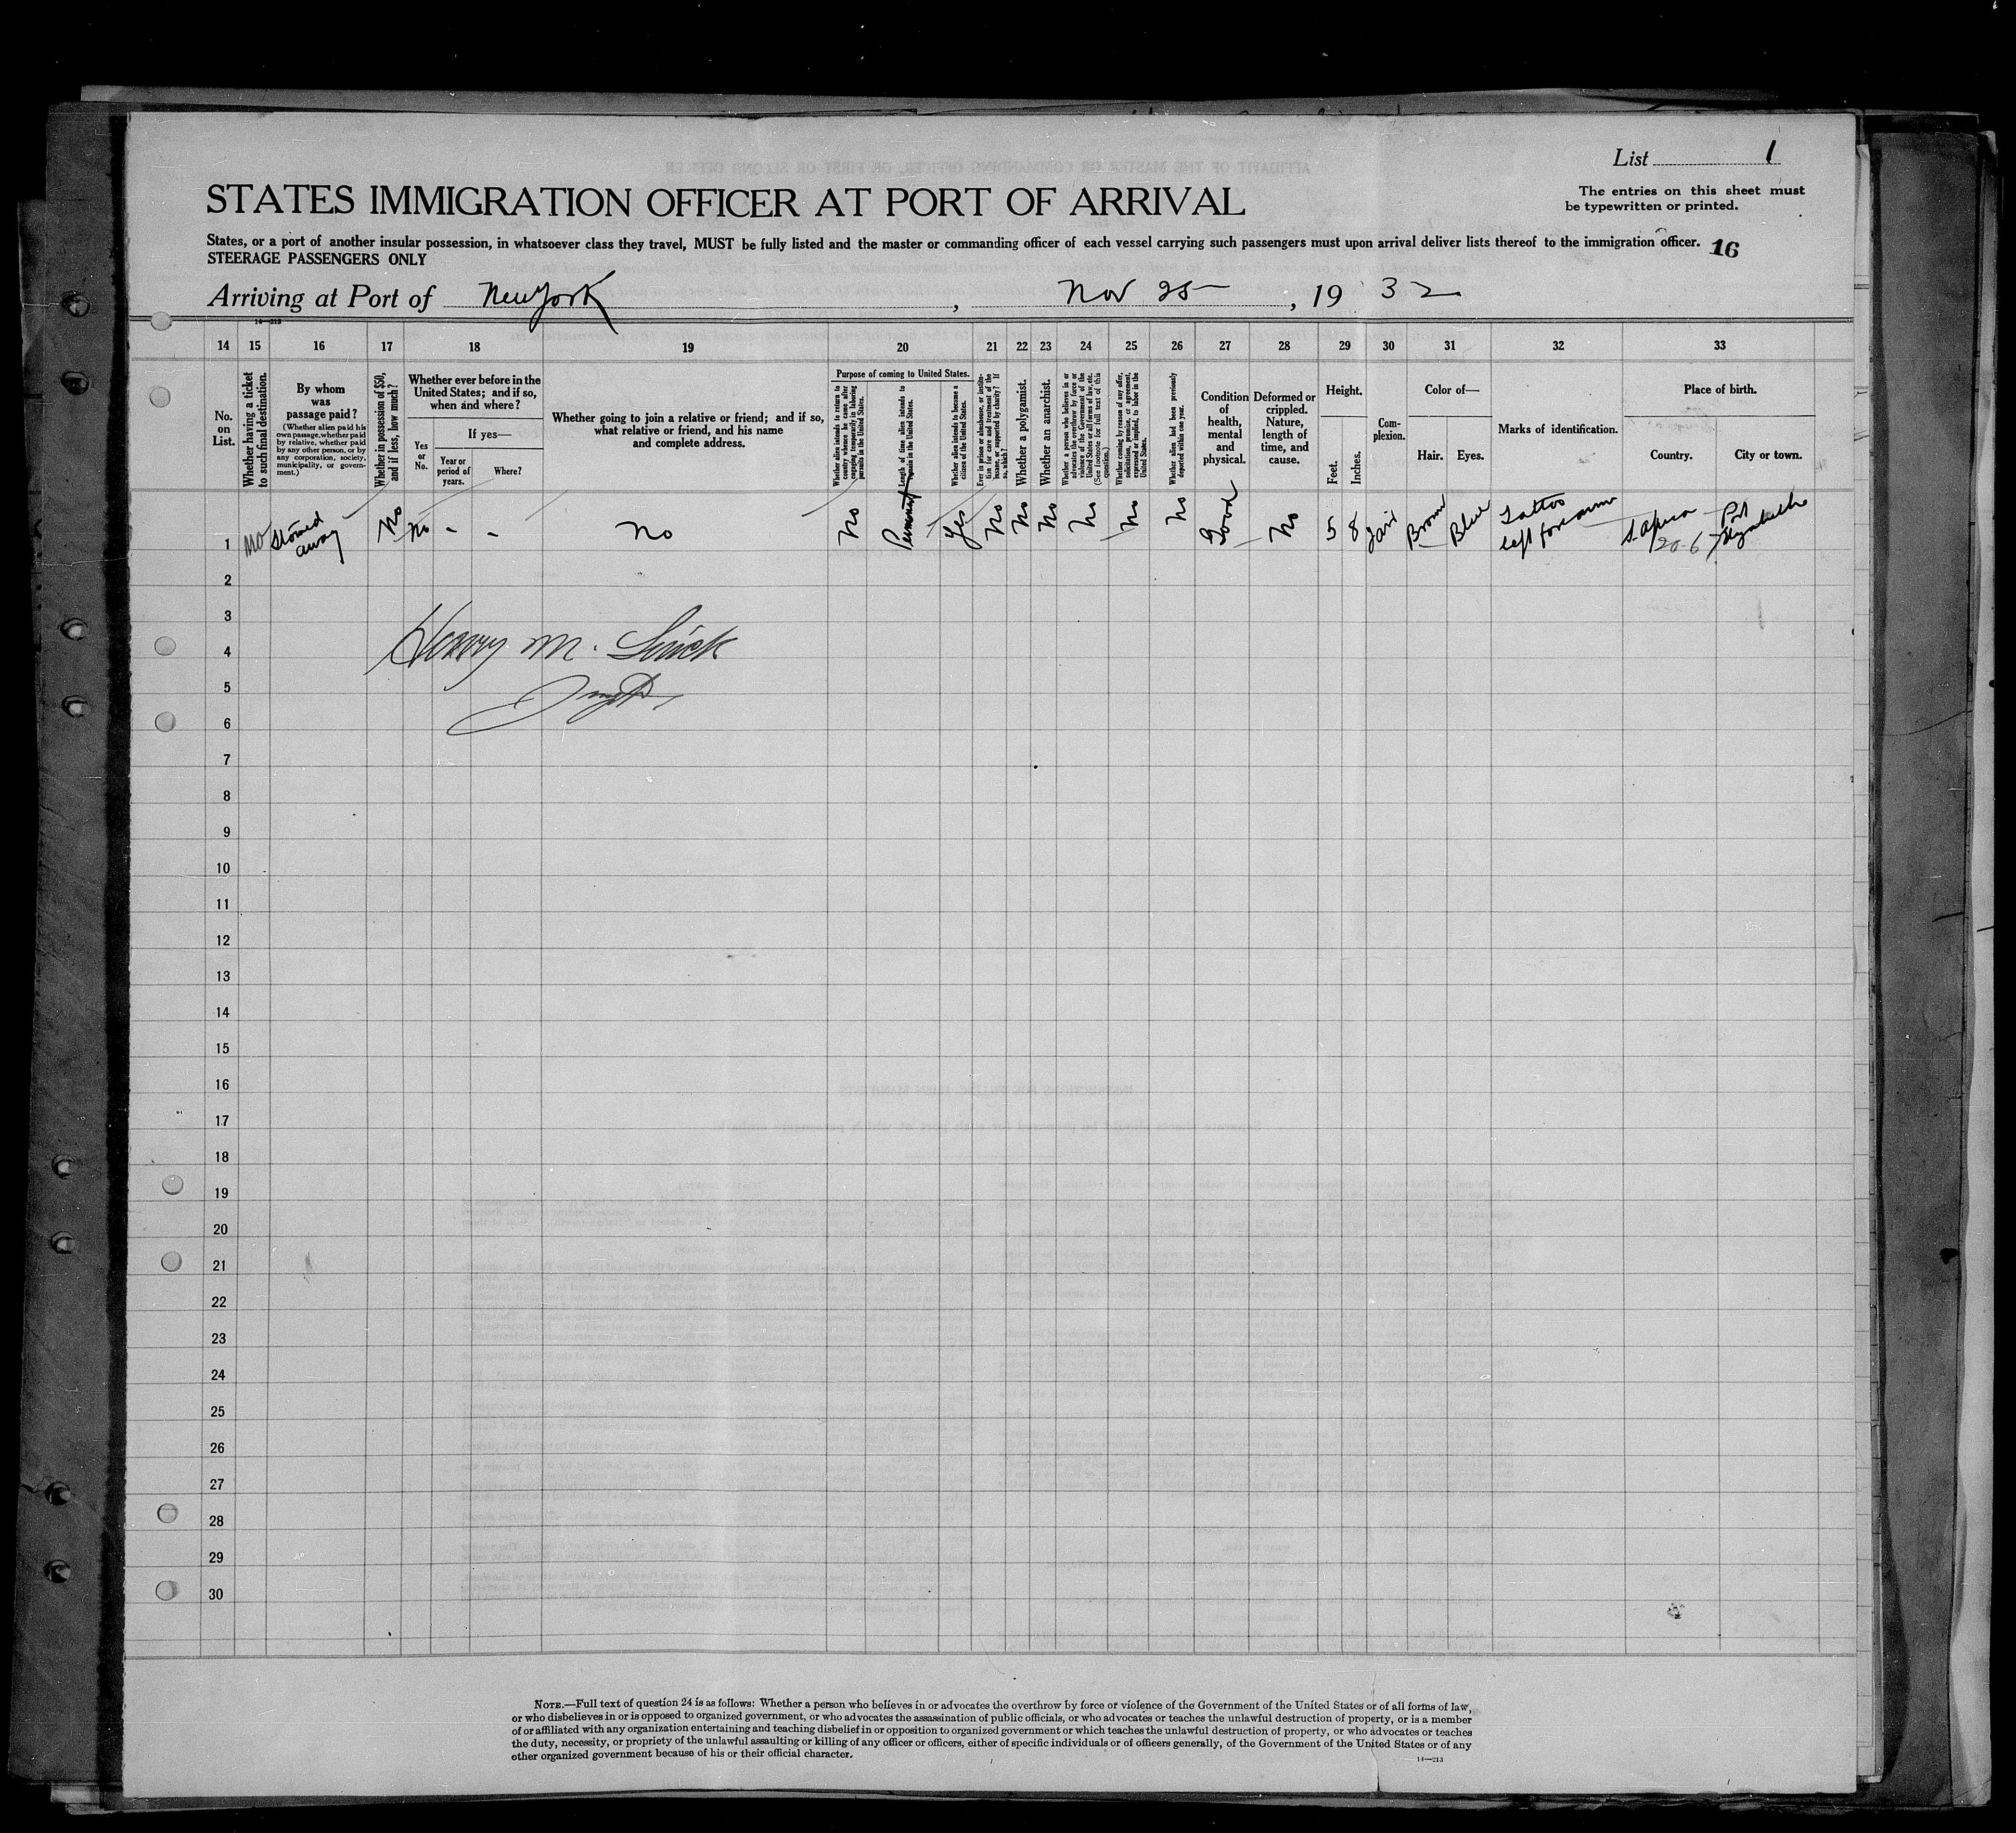 List 1
STATES IMMIGRATION OFFICER AT PORT OF ARRIVAL
The entries on this sheet must
be typewritten or printed.
States, or a port of another insular possession, in whatsoever class they travel, MUST be fully listed and the master or commanding officer of each vessel carrying such passengers must upon arrival deliver lists thereof to the immigration officer.
16
STEERAGE PASSENGERS ONLY
Arriving at Port of New York, Nov 25, 1932
14—213
14 15 16 17 18 19 20 21 22 23 24 25 26 27 28 29 30 31 32 33
No.
on
List.
Whether having a ticket
to such final destination.
By whom
was
passage paid?
(Whether alien paid his
own passage, whether paid
by relative, whether paid
by any other person, or by
any corporation, society,
municipality, or govern-
ment.)
Whether in possession of $50,
and if less, how much?
Whether ever before in the
United States; and if so,
when and where?
Yes
or
No.
If yes—
Year or
period of
years.
Where?
Whether going to join a relative or friend; and if so,
what relative or friend, and his name
and complete address.
Purpose of coming to United States.
Whether alien intends to return to
country whence he came after
engaging temporarily in laboring
pursuits in the United States.
Length of time alien intends to
remain in the United States.
Whether alien intends to become a
citizen of the United States.
Ever in prison or almshouse, or institu-
tion for care and treatment of the
insane, or supported by charity? If
so, which?
Whether a polygamist.
Whether an anarchist.
Whether a person who believes in or
advocates the overthrow by force or
violence of the Government of the
United States or all forms of law, etc.
(See footnote for full text of this
question.)
Whether coming by reason of any offer,
solicitation, promise, or agreement,
expressed or implied, to labor in the
United States.
Whether alien had been previously
deported within one year.
Condition
of
health,
mental
and
physical.
Deformed or
crippled.
Nature,
length of
time, and
cause.
Height.
Feet.
Inches.
Com-
plexion.
Color of—
Hair. Eyes.
Marks of identification.
Place of birth.
Country. City or town.
1 No Stowed away No No - - No No Permanent Yes No No No No No No Good No 5 8 Fair Brown Blue Tattoo left forearm S. Africa Port Elizabeth
20-6
2
3
Henry M.
4
5
6
7
8
9
10
11
12
13
14
15
16
17
18
19
20
21
22
23
24
25
26
27
28
29
30
NOTE.—Full text of question 24 is as follows: Whether a person who believes in or advocates the overthrow by force or violence of the Government of the United States or of all forms of law,
or who disbelieves in or is opposed to organized government, or who advocates the assassination of public officials, or who advocates or teaches the unlawful destruction of property, or is a member
of or affiliated with any organization entertaining and teaching disbelief in or opposition to organized government or which teaches the unlawful destruction of property, or who advocates or teaches
the duty, necessity, or propriety of the unlawful assaulting or killing of any officer or officers, either of specific individuals or of officers generally, of the Government of the United States or of any
other organized government because of his or their official character.
14—213